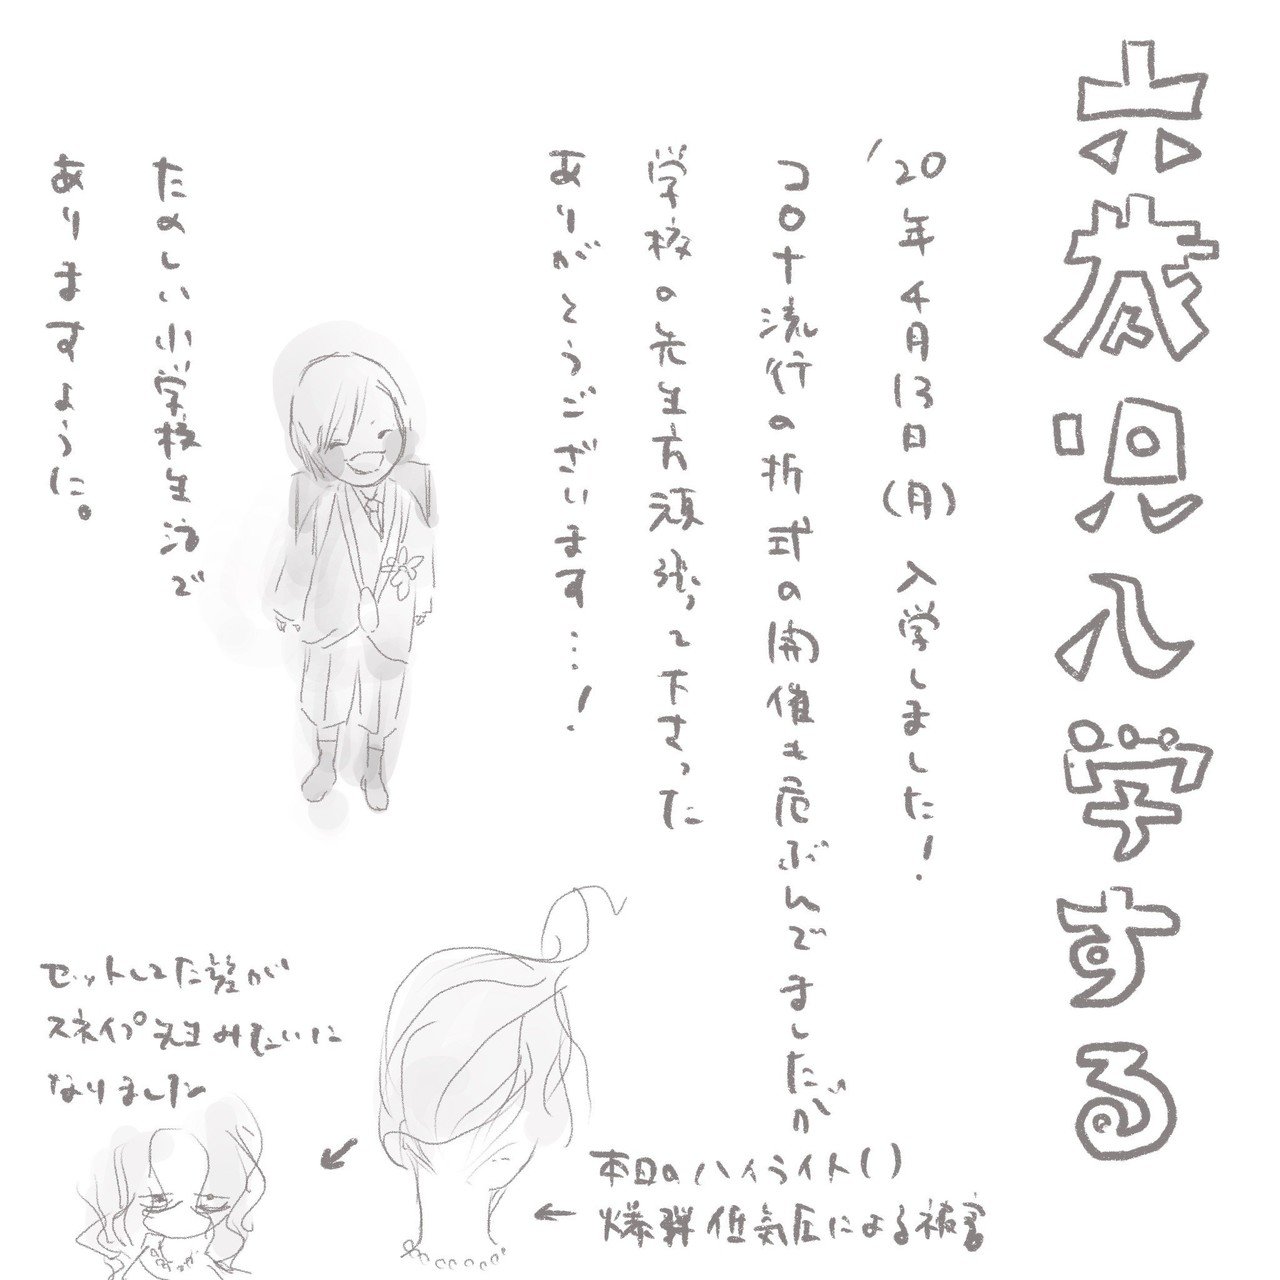 六歳児入学する
'20年4月13日(月)入学しました!
コロナ流行の折式の開催も危ぶんでましたが
学校の先生方頑張って下さった
ありがとうございます…!
たのしい小学校生活で
ありますように。
本日のハイライト()
爆弾低気圧による被害
セットしてた髪が
スネイプ先生みたいに
なりました